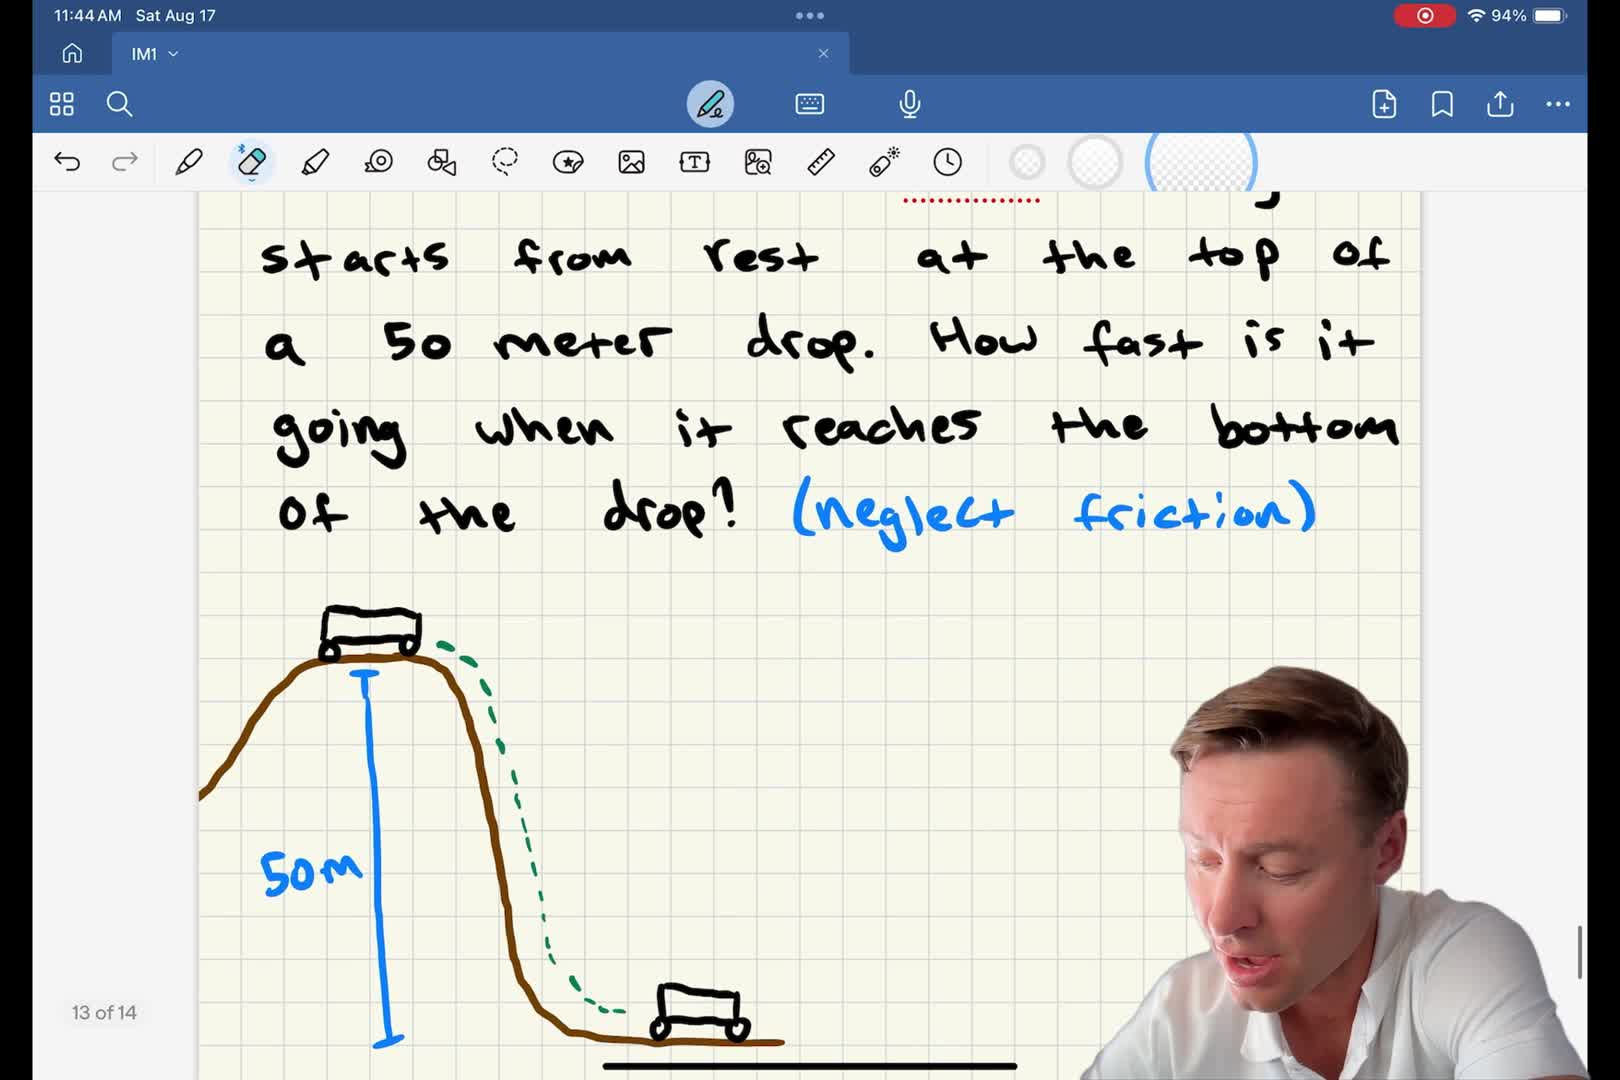 11:44 AM Sat Aug 17
94%
IM1
starts from rest at the top of
a 50 meter drop. How fast is it
going when it reaches the bottom
of the drop? (neglect friction)
50m
13 of 14